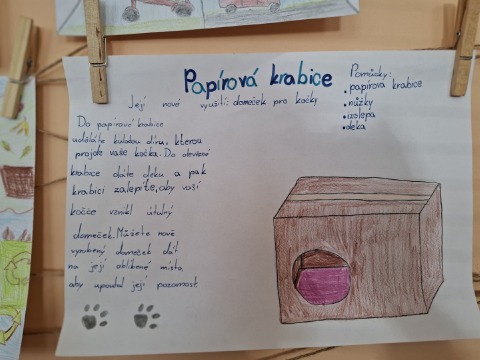 Papírová krabice
Její nové využití: domeček pro kočky
Pomůcky:
• papírová krabice
• nůžky
• izolepa
• deka
Do papírové krabice
uděláte kulatou díru, kterou
projde vaše kočka. Do otevřené
krabice dáte deku a pak
krabici zalepíte, aby vaší
kočce vznikl útulný
domeček. Můžete nově
vyrobený domeček dát
na její oblíbené místo,
aby upoutal její pozornost.